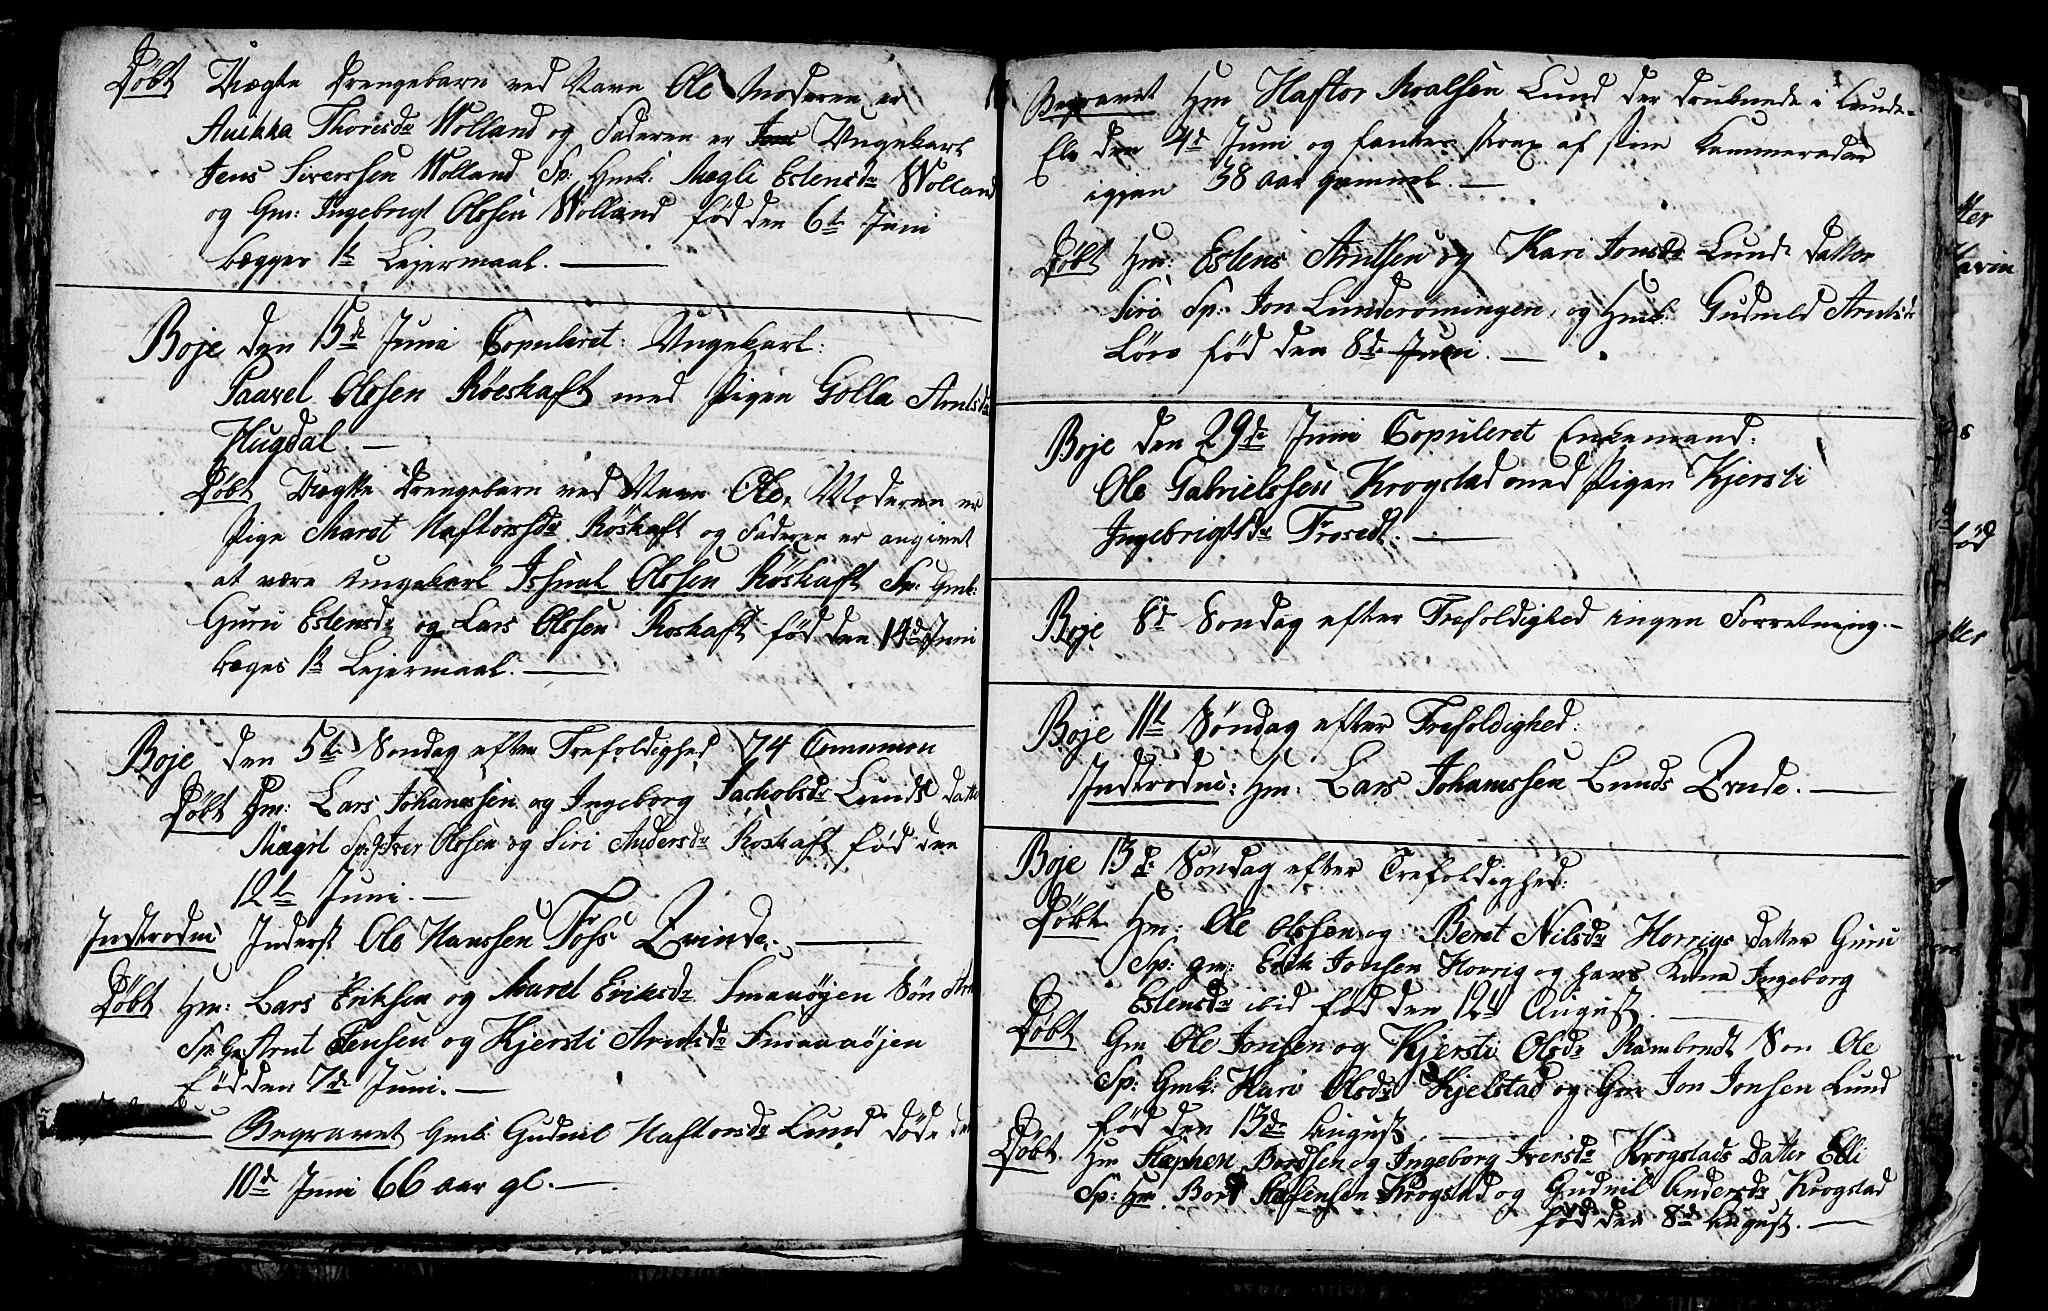 Döbt Uægte Drengebarn ved Navn Ole Moderen er
Annikka Thoresdr Wolland og Faderen er Ungekarl
Jens Siverssen Wolland Sp: Gmk: Mægli Estensdr Wolland
og Gm: Ingebrigt Olssen Wolland föd den 6te Juni
begges 1te Lejermaal. —
Boje den 15de Juni Copuleret: Ungekarl:
Paavel Olssen Röeskaft med Pigen Golla Arntsdr
Hugdal. —
Döbt Uægte Drengebarn ved Navn Ole, Moderen er
Pige Maret Haftorsdr Röskaft og Faderen er angivet
at være Ungekarl Olssen Röskaft Sp: Gmk:
Guru Estensdr og Lars Olssen Roskaft föd den 14de Juni
beges 1te Lejermaal. —
Boje den 5te Söndag efter Trefoldighed 74 Commun
Döbt Hm: Lars Johanssen og Ingeborg Jachobsdr Lunds Datter
Mægit Sp: Iver Olssen og Siri Andersdr Roskaft föd den
12te Juni. —
Indtroduc Inderst Ole Hanssen Fos Qvinde. —
Döbt Hm: Lars Eriksen og Maret Eriksdr Smaaöjen Sön Arn
Sp: Arnt Jensen og Kjersti Arntsdr Smaaöjen
föd den 7de Juni. —
Begravet Gmk: Gudnil Haftorsdr Lund döde den
10de Juni 66 aar gl. —
Begravet Hm Haftor Roalsen Lund der druknede i Lunde-
Elv den 4de Juni og fantes strax af sine Kammerader
igjen 38 aar gammel. —
Döbt Hm: Estens Arntsen og Kari Jonsdr Lunds Datter
Siri Sp: Jon Lunderönningen, og Gmk: Gudnild Arntsdr
föd den 8de Juni. —
Boje den 29de Juni Copuleret Enkemand:
Ole Gabrielssen Krogstad med Pigen Kjersti
Ingebrigtsdr Frosedt. —
Boje 8de Söndag efter Trefoldighed ingen Forretning. —
Boje 11te Söndag efter Trefoldighed:
Indtroduc: Hm: Lars Johanssen Lunds Qvinde. —
Boje 13de Söndag efter Trefoldighed:
Döbt Hm: Ole Olssen og Beret Nilsdr Horrigs Datter Guru
Sp: Gm: Erik Jonsen Horrig og hans Kone Ingeborg
Estensdr ibid föd den 12te August. —
Döbt Gm Ole Jonsen og Kjersti Olsdr Rambredt Sön Ole
Sp: Gmk: Kari Olsdr Kjelstad og Gm Jon Jonsen Lund
föd den 13de August. —
Döbt Hm Stephen Bordsen og Ingeborg Iversdr Krogstads Datter Elli
Sp: Hm Bord Stefensen Krogstad og Gudnil Andersdr Krogstad
föd den 8de August. —